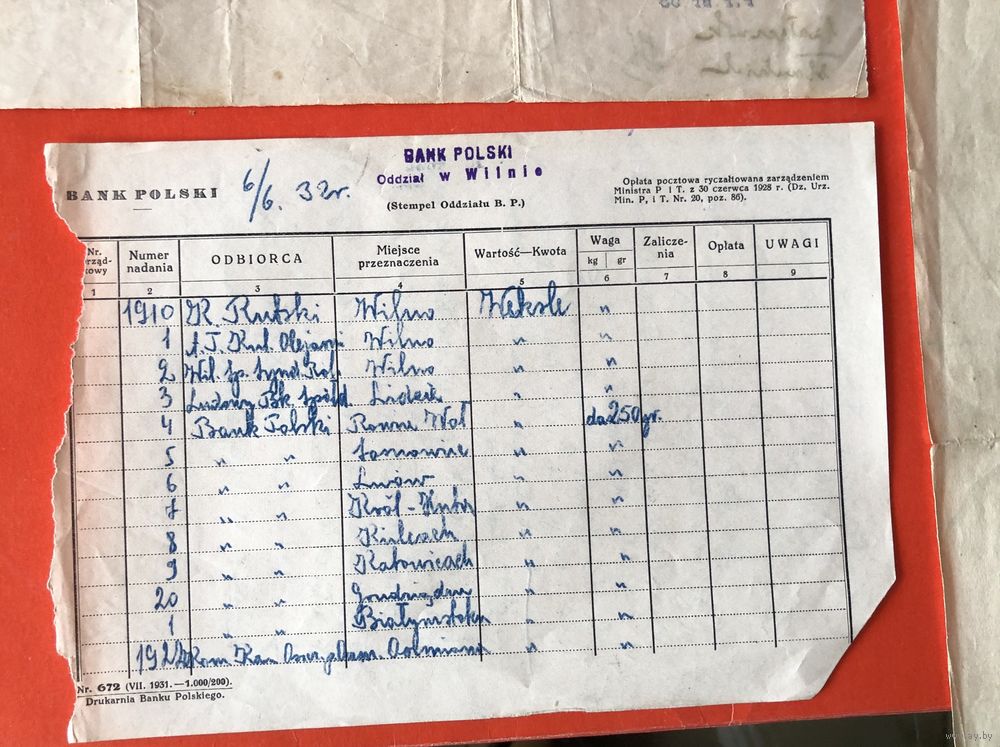 BANK POLSKI
Oddział w Wilnie
BANK POLSKI 6/6. 32r.
(Stempel Oddziału B. P.)
Opłata pocztowa ryczałtowana zarządzeniem
Ministra P i T. z 30 czerwca 1928 r. (Dz. Urz.
Min. P, i T. Nr. 20, poz. 86).
Nr. Numer nadania ODBIORCA Miejsce przeznaczenia Wartość—Kwota Waga kg gr Zalicze-nia Opłata UWAGI
1 2 3 4 5 6 7 8 9
1910 K. Rutski Wilno Weksle "
1 Wilno " "
2 Wil. Sp. Synd. Rol. Wilno " "
3 Ludowy Bk Spółd. Lidzie " "
4 Bank Polski Równe Woł " do 250 gr.
5 " " " "
6 " " Lwów " "
7 " " Król-Huta " "
8 " " Kielcach " "
9 " " Katowicach " "
20 " " Grudziądzu " "
1 " " Białymstoku " "
1922 Kom. Kas. " "
Nr. 672 (VII. 1931.—1.000/200).
Drukarnia Banku Polskiego.